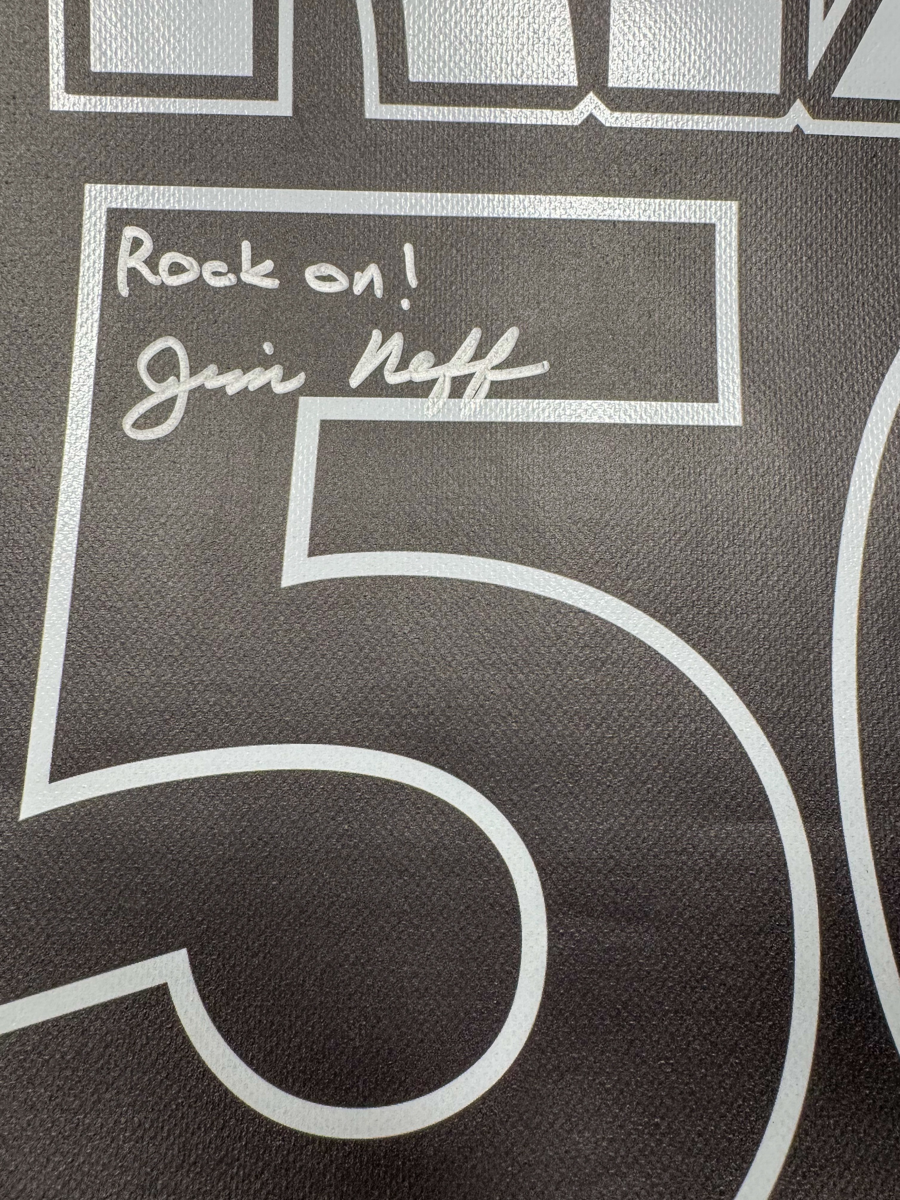 Rock on!
Jim Neff
5